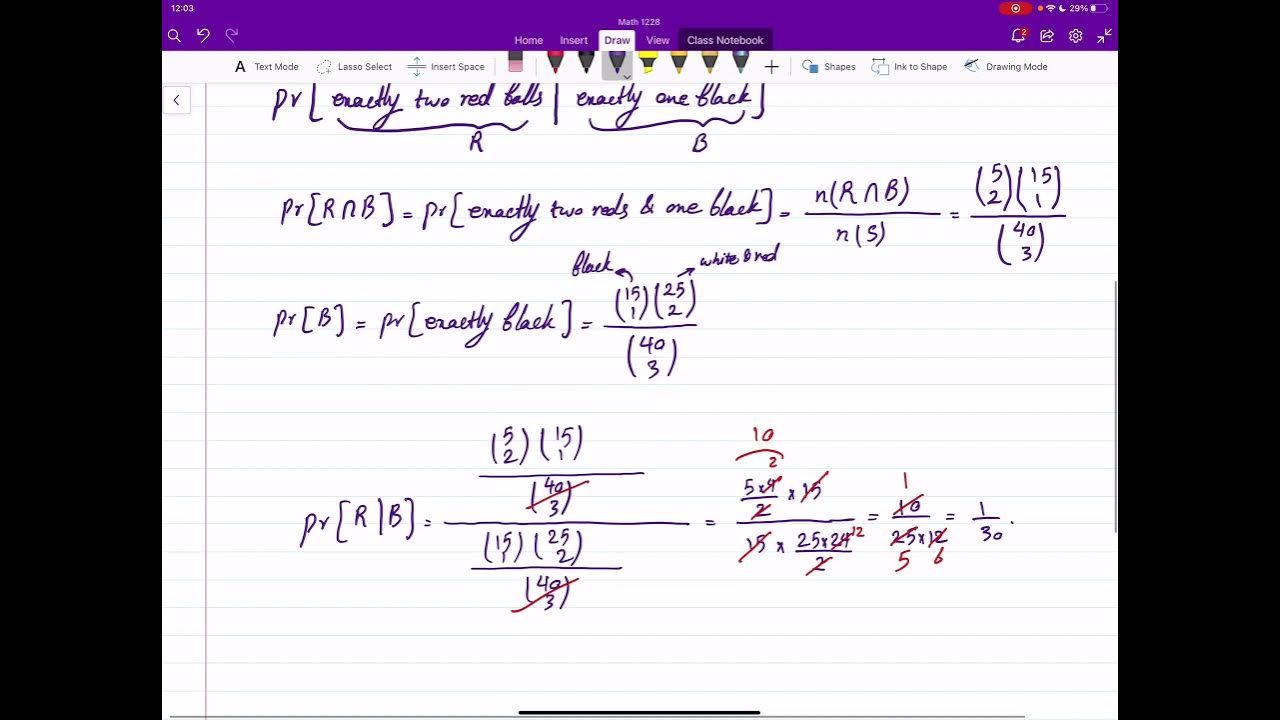 12:03
29%
Math 1228
Home Insert Draw View Class Notebook
2
A Text Mode Lasso Select Insert Space Shapes Ink to Shape Drawing Mode
pr[exactly two red balls | exactly one black]
R B
pr[R∩B] = pr[exactly two reds & one black] = n(R∩B) / n(S) = (5 2)(15 1) / (40 3)
black white & red
pr[B] = pr[exactly black] = (15 1)(25 2) / (40 3)
10
2
1
pr[R|B] = (5 2)(15 1) / (40 3) / (15 1)(25 2) / (40 3) = 5×4 / 2 × 15 / 15 × 25×24 / 2 = 10 / 25×12 = 1 / 30.
12
5 6